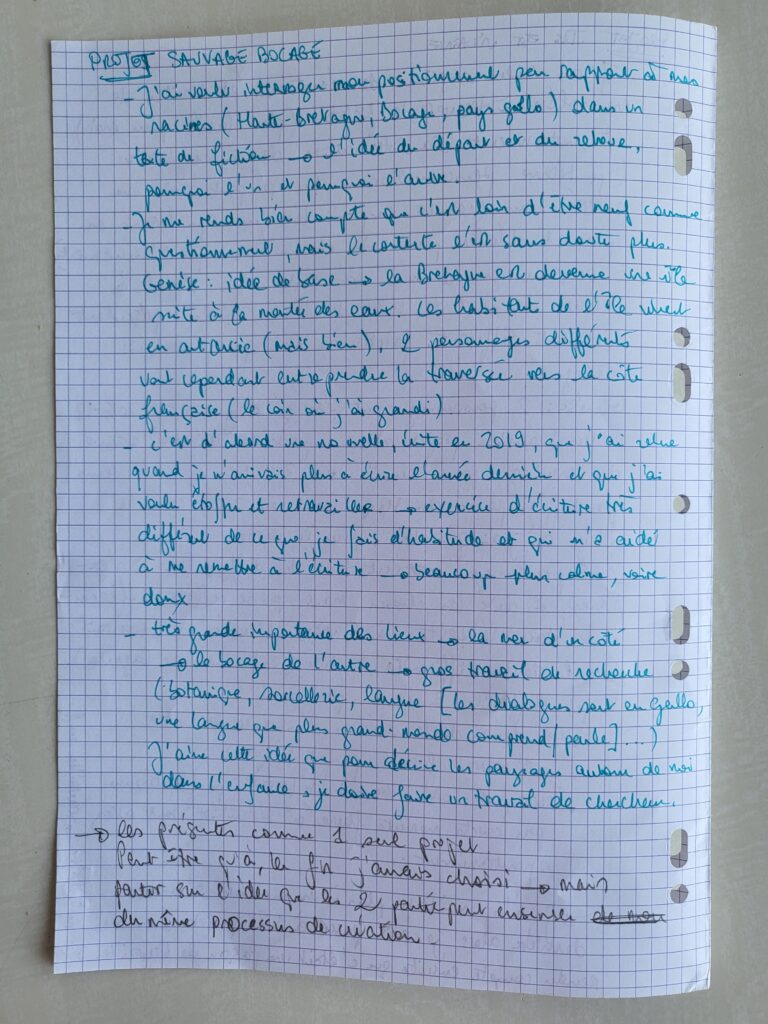 PROJET SAUVAGE BOCAGE
- J'ai voulu interroger mon positionnement par rapport à mes
racines (Haute-Bretagne, Bocage, pays gallo) dans un
texte de fiction → l'idée du départ et du retour,
pourquoi l'un et pourquoi l'autre.
- Je me rends bien compte que c'est loin d'être neuf comme
questionnement, mais le contexte l'est sans doute plus.
Genèse : idée de base → la Bretagne est devenue une île
suite à la montée des eaux. Les habitant de l'île vivent
en autarcie (mais bien), 2 personnages différents
vont cependant entreprendre la traversée vers la côte
française (le coin où j'ai grandi)
- c'est d'abord une nouvelle, écrite en 2019, que j'ai relue
quand je n'arrivais plus à écrire l'année dernière et que j'ai
voulu étoffer et retravailler → exercice d'écriture très
différent de ce que je fais d'habitude et qui m'a aidé
à me remettre à l'écriture → beaucoup plus calme, voire
doux
- très grande importance des lieux → la mer d'un côté
→ le bocage de l'autre → gros travail de recherche
(botanique, sorcellerie, langue [les dialogues sont en Gallo,
une langue que plus grand-monde comprend/parle]...)
J'aime cette idée que pour décrire les paysages autour de moi
dans l'enfance, je doive faire un travail de chercheur.
→ les présenter comme 1 seul projet
Peut être qu'à la fin j'aurais choisi → mais
partir sur l'idée que les 2 partie
du même processus de création.